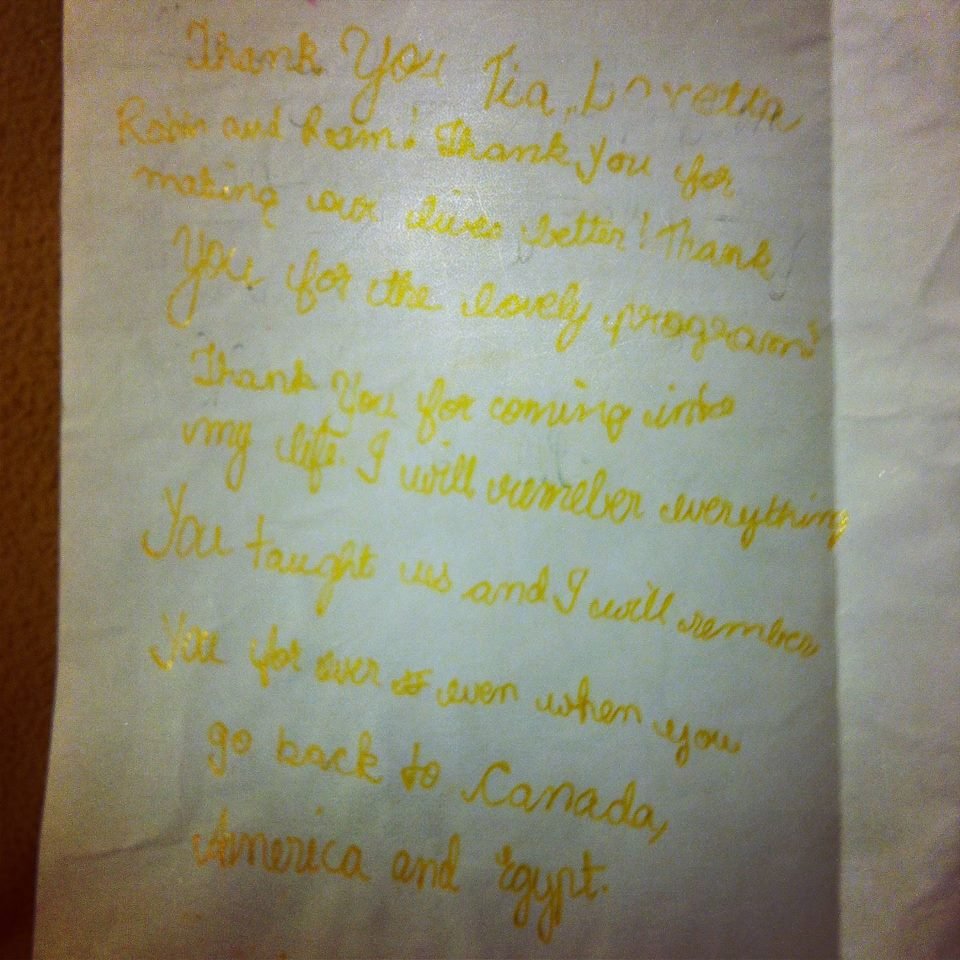 Thank You Tia, Loretta
Robin and Reem! Thank you for
making our lives better! Thank
You for the lovely program!
Thank You for coming into
my life. I will remeber everything
You taught us and I will remember
You for ever even when you
go back to Canada,
America and Egypt.